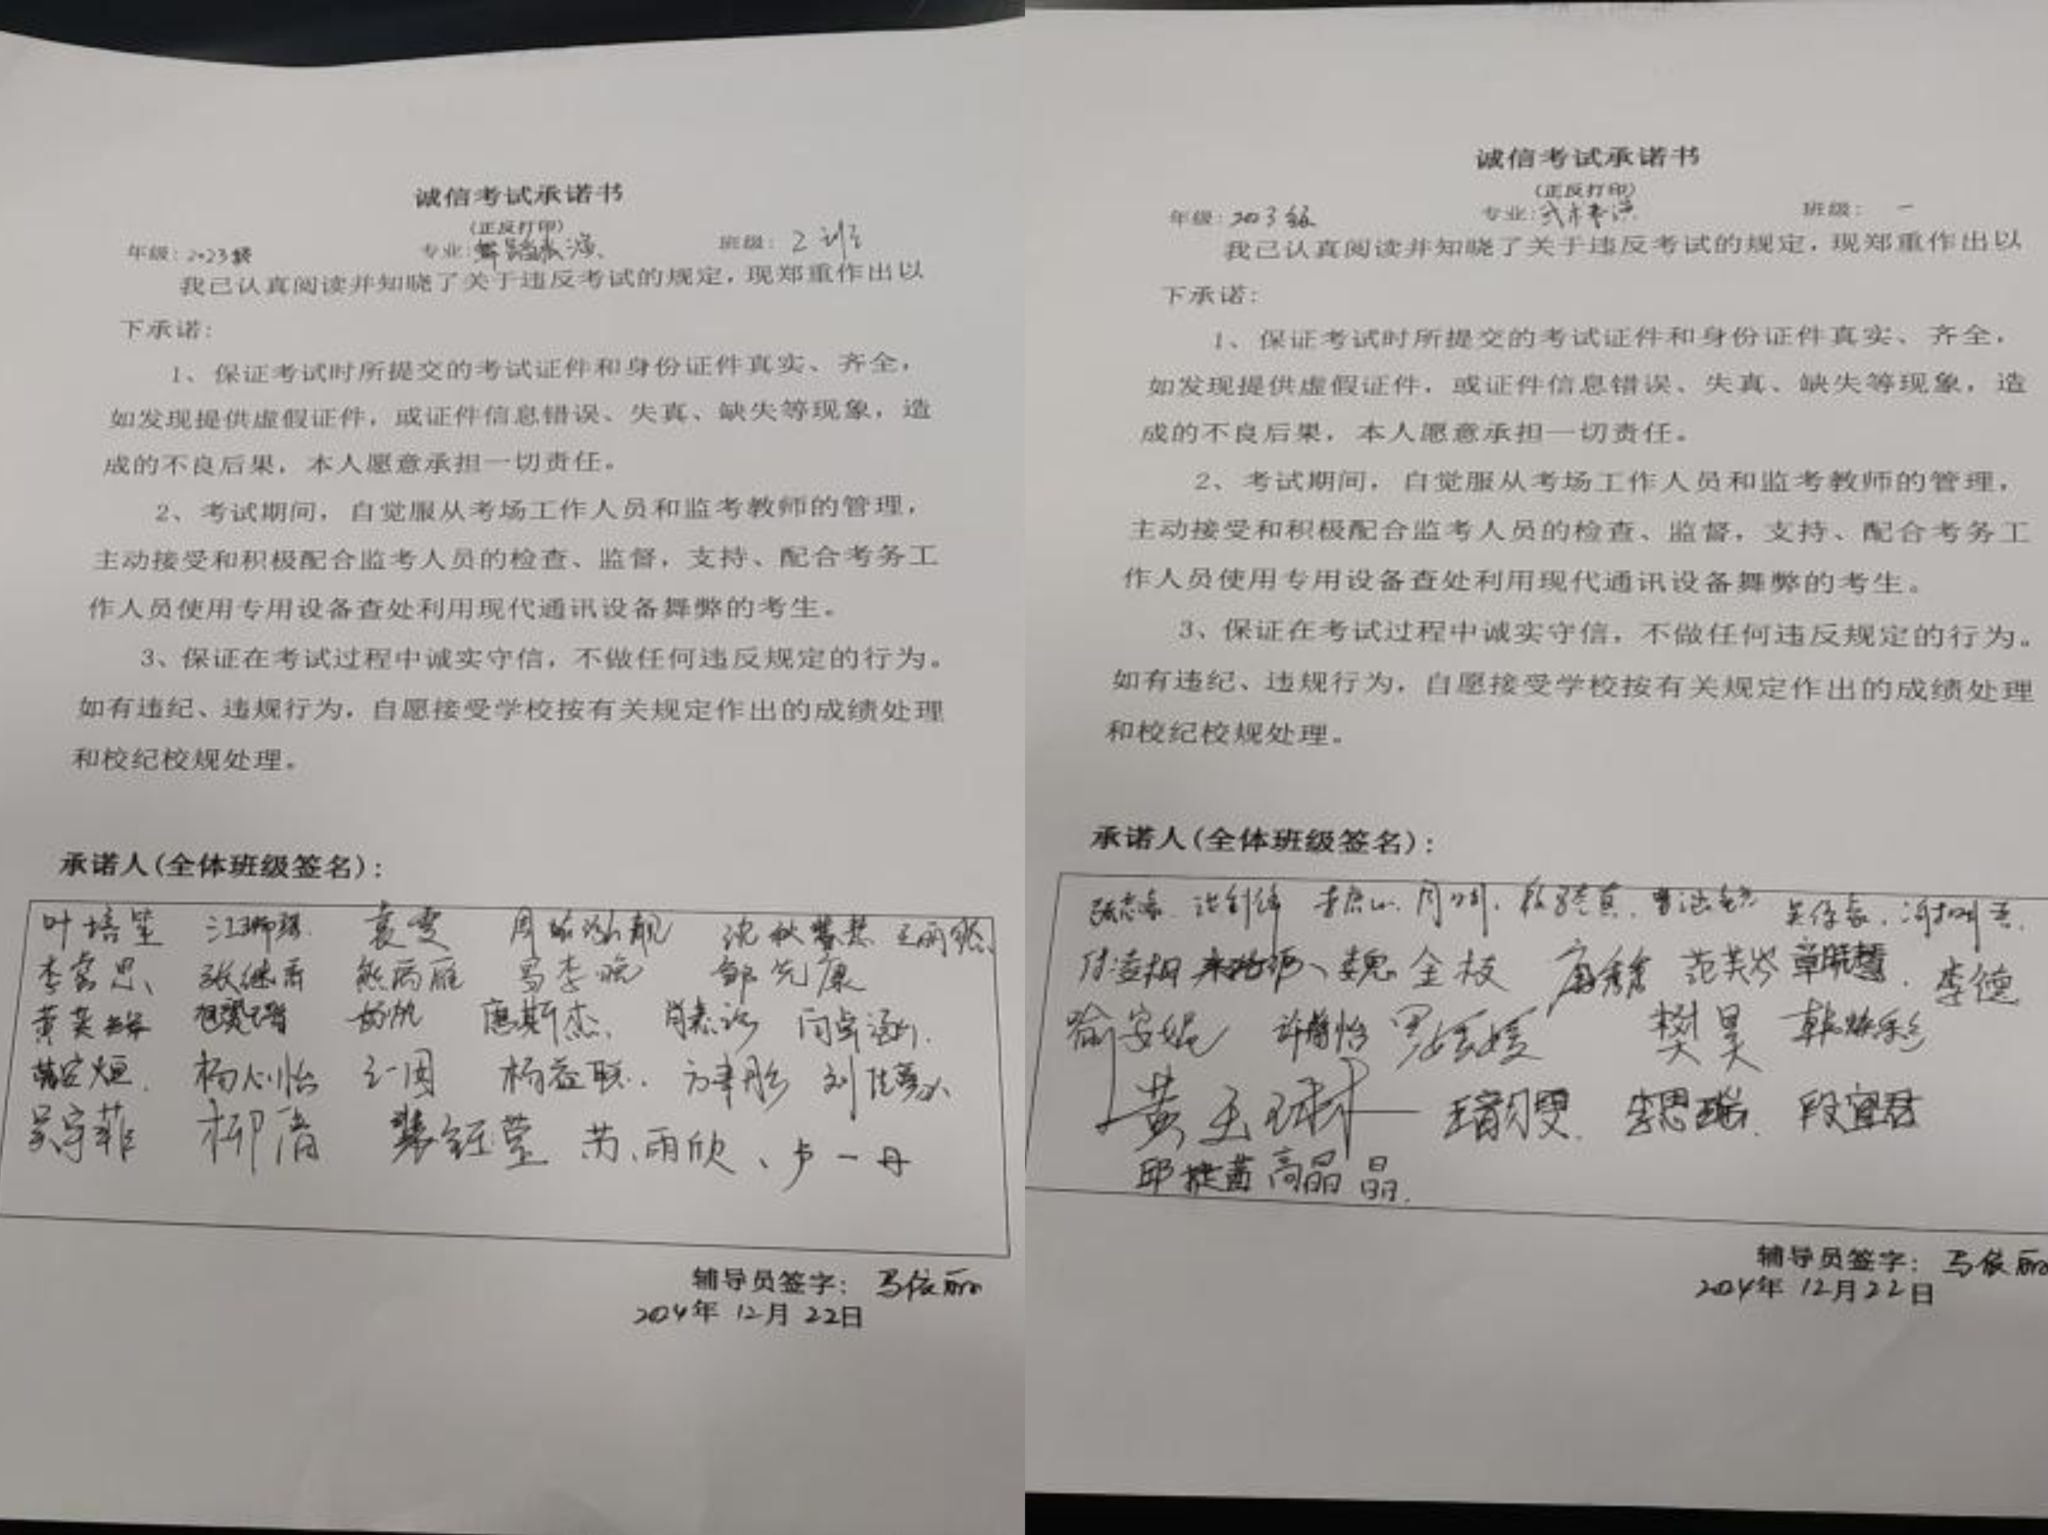 诚信考试承诺书
(正反打印)
年级:2023级 专业:舞蹈表演 班级:2班
我已认真阅读并知晓了关于违反考试的规定,现郑重作出以
下承诺:
1、保证考试时所提交的考试证件和身份证件真实、齐全,
如发现提供虚假证件,或证件信息错误、失真、缺失等现象,造
成的不良后果,本人愿意承担一切责任。
2、考试期间,自觉服从考场工作人员和监考教师的管理,
主动接受和积极配合监考人员的检查、监督,支持、配合考务工
作人员使用专用设备查处利用现代通讯设备舞弊的考生。
3、保证在考试过程中诚实守信,不做任何违反规定的行为。
如有违纪、违规行为,自愿接受学校按有关规定作出的成绩处理
和校纪校规处理。
承诺人(全体班级签名):
叶培莹 袁雯
熊雨雁 邹先康
唐斯杰
杨心怡
吴宇菲 柳清 苏雨欣、卢一丹
辅导员签字:马依丽
2024年12月22日
诚信考试承诺书
(正反打印)
年级:2023级 专业:武术表演 班级:一
我已认真阅读并知晓了关于违反考试的规定,现郑重作出以
下承诺:
1、保证考试时所提交的考试证件和身份证件真实、齐全,
如发现提供虚假证件,或证件信息错误、失真、缺失等现象,造
成的不良后果,本人愿意承担一切责任。
2、考试期间,自觉服从考场工作人员和监考教师的管理,
主动接受和积极配合监考人员的检查、监督,支持、配合考务工
作人员使用专用设备查处利用现代通讯设备舞弊的考生。
3、保证在考试过程中诚实守信,不做任何违反规定的行为。
如有违纪、违规行为,自愿接受学校按有关规定作出的成绩处理
和校纪校规处理。
承诺人(全体班级签名):
魏金枝 范芙岑 李德
喻安妮 许静怡 罗媛媛 樊昊
黄玉琳 李思瑞 段宜君
高晶晶
辅导员签字:马依丽
2024年12月22日